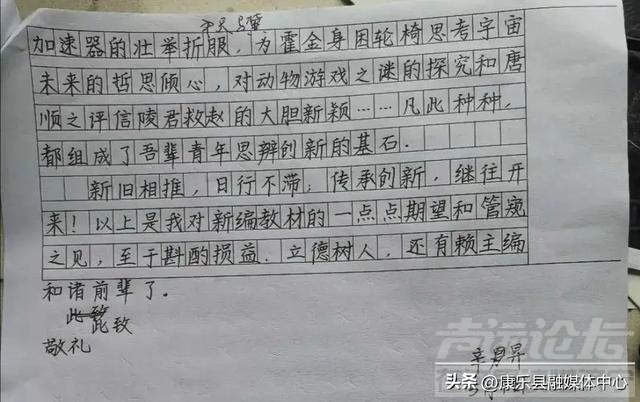 加速器的壮举折服，为霍金身困轮椅思考宇宙
未来的哲思倾心，对动物游戏之谜的探究和唐
顺之评信陵君救赵的大胆新颖……凡此种种，
都组成了吾辈青年思辨创新的基石．
新旧相推，日行不滞；传承创新，继往开
来！以上是我对新编教材的一点点期望和管窥
之见，至于斟酌损益．立德树人，还有赖主编
和诸前辈了．
此致
此致
敬礼
头条 @康乐县融媒体中心